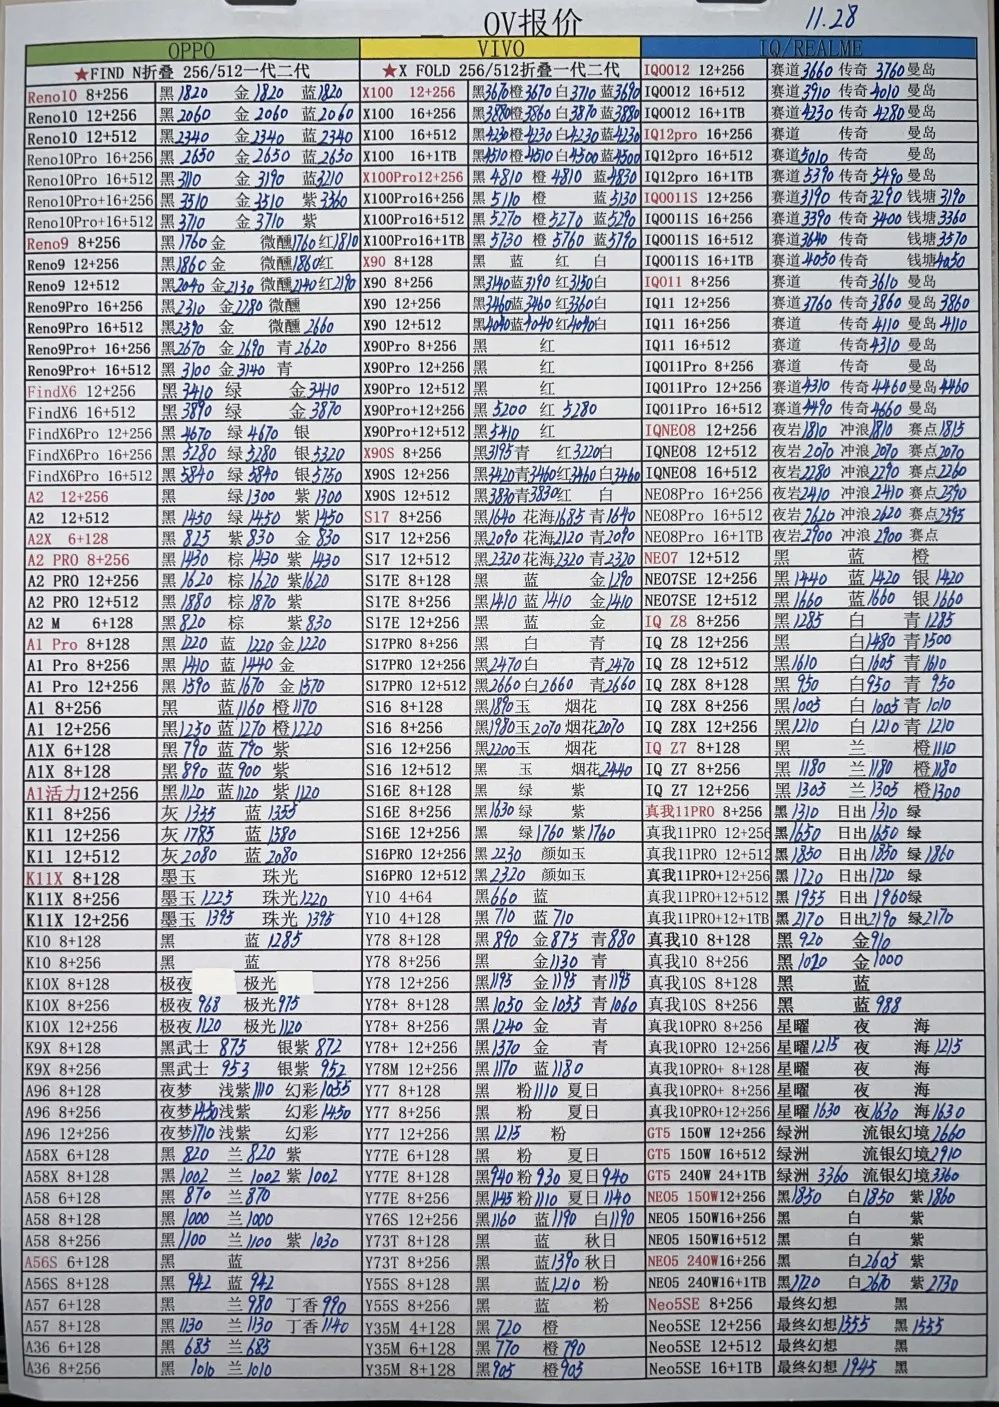 OV报价
11.28
OPPO
★FIND N折叠 256/512一代二代
Reno10 8+256 黑1820 金1820 蓝1820
Reno10 12+256 黑2060 金2060 蓝2060
Reno10 12+512 黑2340 金2340 蓝2340
Reno10Pro 16+256 黑2650 金2650 蓝2650
Reno10Pro 16+512 黑3110 金3190 蓝3210
Reno10Pro+16+256 黑3510 金3510 紫3560
Reno10Pro+16+512 黑3710 金3710 紫
Reno9 8+256 黑1760 金 微醺1760 红1810
Reno9 12+256 黑1860 金 微醺1860 红
Reno9 12+512 黑2040 金2130 微醺2140 红2190
Reno9Pro 16+256 黑2310 金2280 微醺
Reno9Pro 16+512 黑2590 金 微醺 2660
Reno9Pro+ 16+256 黑2670 金2690 青2620
Reno9Pro+ 16+512 黑3100 金3140 青
FindX6 12+256 黑3410 绿 金3410
FindX6 16+512 黑3890 绿 金3870
FindX6Pro 12+256 黑4670 绿4670 银
FindX6Pro 16+256 黑5280 绿5280 银5320
FindX6Pro 16+512 黑5840 绿5840 银5750
A2 12+256 黑 绿1300 紫1300
A2 12+512 黑1450 绿1450 紫1450
A2X 6+128 黑825 紫830 金830
A2 PRO 8+256 黑1430 棕1430 紫1430
A2 PRO 12+256 黑1620 棕1620 紫1620
A2 PRO 12+512 黑1880 棕1870 紫
A2 M 6+128 黑820 棕 紫830
A1 Pro 8+128 黑1220 蓝1220 金1220
A1 Pro 8+256 黑1410 蓝1440 金
A1 Pro 12+256 黑1590 蓝1670 金1570
A1 8+256 黑 蓝1160 橙1170
A1 12+256 黑1230 蓝1270 橙1220
A1X 6+128 黑790 蓝790 紫
A1X 8+128 黑890 蓝900 紫
A1活力12+256 黑1120 蓝1120 紫1120
K11 8+256 灰1355 蓝1355
K11 12+256 灰1785 蓝1580
K11 12+512 灰2080 蓝2080
K11X 8+128 墨玉 珠光
K11X 8+256 墨玉1225 珠光1220
K11X 12+256 墨玉1395 珠光1395
K10 8+128 黑 蓝1285
K10 8+256 黑 蓝
K10X 8+128 极夜 极光
K10X 8+256 极夜968 极光975
K10X 12+256 极夜1120 极光1120
K9X 8+128 黑武士875 银紫872
K9X 8+256 黑武士953 银紫952
A96 8+128 夜梦 浅紫1110 幻彩1055
A96 8+256 夜梦1450 浅紫 幻彩1450
A96 12+256 夜梦1710 浅紫 幻彩
A58X 6+128 黑820 兰820 紫
A58X 8+128 黑1002 兰1002 紫1002
A58 6+128 黑870 兰870
A58 8+128 黑1000 兰1000
A58 8+256 黑1100 兰1100 紫1030
A56S 6+128 黑 蓝
A56S 8+128 黑942 蓝942
A57 6+128 黑 兰980 丁香990
A57 8+128 黑1130 兰1130 丁香1140
A36 6+128 黑685 兰685
A36 8+256 黑1010 兰1010
VIVO
★X FOLD 256/512折叠一代二代
X100 12+256 黑3670 橙3670 白3710 蓝3690
X100 16+256 黑3880 橙3860 白3870 蓝3880
X100 16+512 黑4230 橙4230 白4230 蓝4230
X100 16+1TB 黑4510 橙4510 白4500 蓝4500
X100Pro12+256 黑4810 橙4810 蓝4830
X100Pro16+256 黑5110 橙 蓝5130
X100Pro16+512 黑5270 橙5270 蓝5290
X100Pro16+1TB 黑5730 橙5760 蓝5790
X90 8+128 黑 蓝 红 白
X90 8+256 黑3140 蓝3190 红3150 白
X90 12+256 黑3460 蓝3460 红3360 白
X90 12+512 黑4040 蓝4040 红4040 白
X90Pro 8+256 黑 红
X90Pro 12+256 黑 红
X90Pro 12+512 黑 红
X90Pro+12+256 黑5200 红5280
X90Pro+12+512 黑5410 红
X90S 8+256 黑3195 青 红3220 白
X90S 12+256 黑3420 青3460 红3460 白3460
X90S 12+512 黑3830 青3830 红 白
S17 8+256 黑1640 花海1685 青1640
S17 12+256 黑2090 花海2120 青2090
S17 12+512 黑2320 花海2320 青2320
S17E 8+128 黑 蓝 金1290
S17E 8+256 黑1410 蓝1410 金1410
S17E 12+256 黑 蓝 金
S17PRO 8+256 黑 白 青
S17PRO 12+256 黑2470 白 青2470
S17PRO 12+512 黑2660 白2660 青2660
S16 8+128 黑1890 玉 烟花
S16 8+256 黑1980 玉2070 烟花2070
S16 12+256 黑2200 玉 烟花
S16 12+512 黑 玉 烟花2440
S16E 8+128 黑 绿 紫
S16E 8+256 黑1630 绿 紫
S16E 12+256 黑 绿1760 紫1760
S16PRO 12+256 黑2230 颜如玉
S16PRO 12+512 黑2320 颜如玉
Y10 4+64 黑660 蓝
Y10 4+128 黑710 蓝710
Y78 8+128 黑890 金875 青880
Y78 8+256 黑 金1130 青
Y78 12+256 黑1195 金1195 青1195
Y78+ 8+128 黑1050 金1055 青1060
Y78+ 8+256 黑1240 金 青
Y78+ 12+256 黑1370 金 青
Y78M 12+256 黑1170 蓝1180
Y77 8+128 黑 粉1110 夏日
Y77 8+256 黑 粉 夏日
Y77 12+256 黑1215 粉
Y77E 6+128 黑 粉 夏日
Y77E 8+128 黑940 粉930 夏日940
Y77E 8+256 黑1145 粉1110 夏日1140
Y76S 12+256 黑1160 蓝1190 白1190
Y73T 8+128 黑 蓝 秋日
Y73T 8+256 黑 蓝1390 秋日
Y55S 8+128 黑 蓝1210 粉
Y55S 8+256 黑 蓝 粉
Y35M 4+128 黑720 橙
Y35M 6+128 黑770 橙790
Y35M 8+128 黑905 橙905
IQ/REALME
IQOO12 12+256 赛道3660 传奇3760 曼岛
IQOO12 16+512 赛道3910 传奇4010 曼岛
IQOO12 16+1TB 赛道4230 传奇4280 曼岛
IQ12pro 16+256 赛道 传奇 曼岛
IQ12pro 16+512 赛道5010 传奇 曼岛
IQ12pro 16+1TB 赛道5390 传奇5490 曼岛
IQOO11S 12+256 赛道3190 传奇3290 钱塘3190
IQOO11S 16+256 赛道3390 传奇3400 钱塘3360
IQOO11S 16+512 赛道3640 传奇 钱塘3570
IQOO11S 16+1TB 赛道4050 传奇 钱塘4050
IQO11 8+256 赛道 传奇3610 曼岛
IQ11 12+256 赛道3760 传奇3860 曼岛3860
IQ11 16+256 赛道 传奇4110 曼岛4110
IQ11 16+512 赛道 传奇4310 曼岛
IQO11Pro 8+256 赛道 传奇 曼岛
IQO11Pro 12+256 赛道4310 传奇4460 曼岛4460
IQO11Pro 16+512 赛道4490 传奇4660 曼岛
IQNEO8 12+256 夜岩1810 冲浪1810 赛点1815
IQNEO8 12+512 夜岩2070 冲浪2070 赛点2070
IQNEO8 16+512 夜岩2280 冲浪2290 赛点2260
NEO8Pro 16+256 夜岩2410 冲浪2410 赛点2390
NEO8Pro 16+512 夜岩2620 冲浪2620 赛点2595
NEO8Pro 16+1TB 夜岩2900 冲浪2900 赛点
NEO7 12+512 黑 蓝 橙
NEO7SE 12+256 黑1440 蓝1420 银1420
NEO7SE 12+512 黑1660 蓝1660 银1660
IQ Z8 8+256 黑1285 白 青1285
IQ Z8 12+256 黑 白1480 青1500
IQ Z8 12+512 黑1610 白1605 青1610
IQ Z8X 8+128 黑950 白950 青950
IQ Z8X 8+256 黑1005 白1005 青1010
IQ Z8X 12+256 黑1210 白1210 青1210
IQ Z7 8+128 黑 兰 橙1110
IQ Z7 8+256 黑1180 兰1180 橙1180
IQ Z7 12+256 黑1305 兰1305 橙1300
真我11PRO 8+256 黑1310 日出1310 绿
真我11PRO 12+256 黑1650 日出1650 绿
真我11PRO 12+512 黑1850 日出1850 绿1860
真我11PRO+12+256 黑1720 日出1720 绿
真我11PRO+12+512 黑1955 日出1960 绿
真我11PRO+12+1TB 黑2170 日出2190 绿2170
真我10 8+128 黑920 金910
真我10 8+256 黑1020 金1000
真我10S 8+128 黑 蓝
真我10S 8+256 黑 蓝988
真我10PRO 8+256 星曜 夜 海
真我10PRO 12+256 星曜1215 夜 海1215
真我10PRO+ 8+128 星曜 夜 海
真我10PRO+ 8+256 星曜 夜 海
真我10PRO+12+256 星曜1630 夜1630 海1630
GT5 150W 12+256 绿洲 流银幻境2660
GT5 150W 16+512 绿洲 流银幻境2910
GT5 240W 24+1TB 绿洲3360 流银幻境3360
NEO5 150W12+256 黑1850 白1850 紫1860
NEO5 150W16+256 黑 白 紫
NEO5 150W16+512 黑 白 紫
NEO5 240W16+256 黑 白2605 紫
NEO5 240W16+1TB 黑2720 白2670 紫2730
Neo5SE 8+256 最终幻想 黑
Neo5SE 12+256 最终幻想1555 黑1555
Neo5SE 12+512 最终幻想 黑
Neo5SE 16+1TB 最终幻想1945 黑